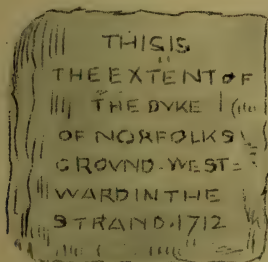 THIS IS
THE EXTENT OF
THE DVKE
OF NORFOLKS
GROVND-WEST=
WARD IN THE
STRAND.1712